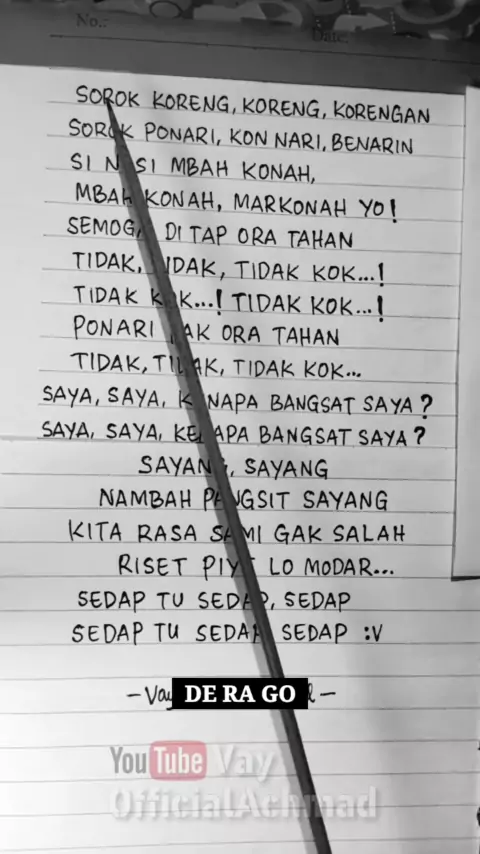 No.:
Date:
SOROK KORENG, KORENG, KORENGAN
SOROK PONARI, KON NARI, BENARIN
SI SI MBAH KONAH,
MBAH KONAH, MARKONAH YO!
SEMOGA DI TAP ORA TAHAN
TIDAK, TIDAK, TIDAK KOK...!
TIDAK KOK...! TIDAK KOK...!
PONARI ORA TAHAN
TIDAK, TIDAK, TIDAK KOK...
SAYA, SAYA, KENAPA BANGSAT SAYA?
SAYA, SAYA, KENAPA BANGSAT SAYA?
SAYANG, SAYANG
NAMBAH PANGSIT SAYANG
KITA RASA SAMI GAK SALAH
RISET PIYE LO MODAR...
SEDAP TU SEDAP, SEDAP
SEDAP TU SEDAP, SEDAP :V
DE RA GO
YouTube Vay
OfficialAchmad